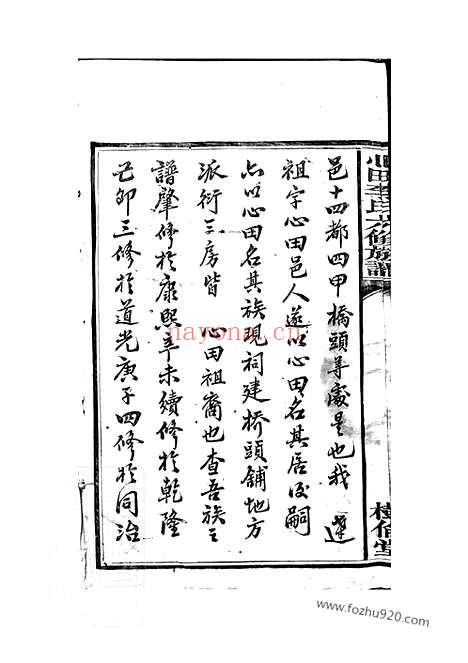 心田李氏六修族譜
樹伯堂
邑十四都四甲橋頭等處是也我 遠
祖字心田邑人遂以心田名其居後嗣
亦以心田名其族現祠建橋頭鋪地方
派衍三房皆 心田祖裔也查吾族之
譜肇修於康熙辛未續修於乾隆
乙卯三修於道光庚子四修於同治
nayona.cn
www.fozhu920.com